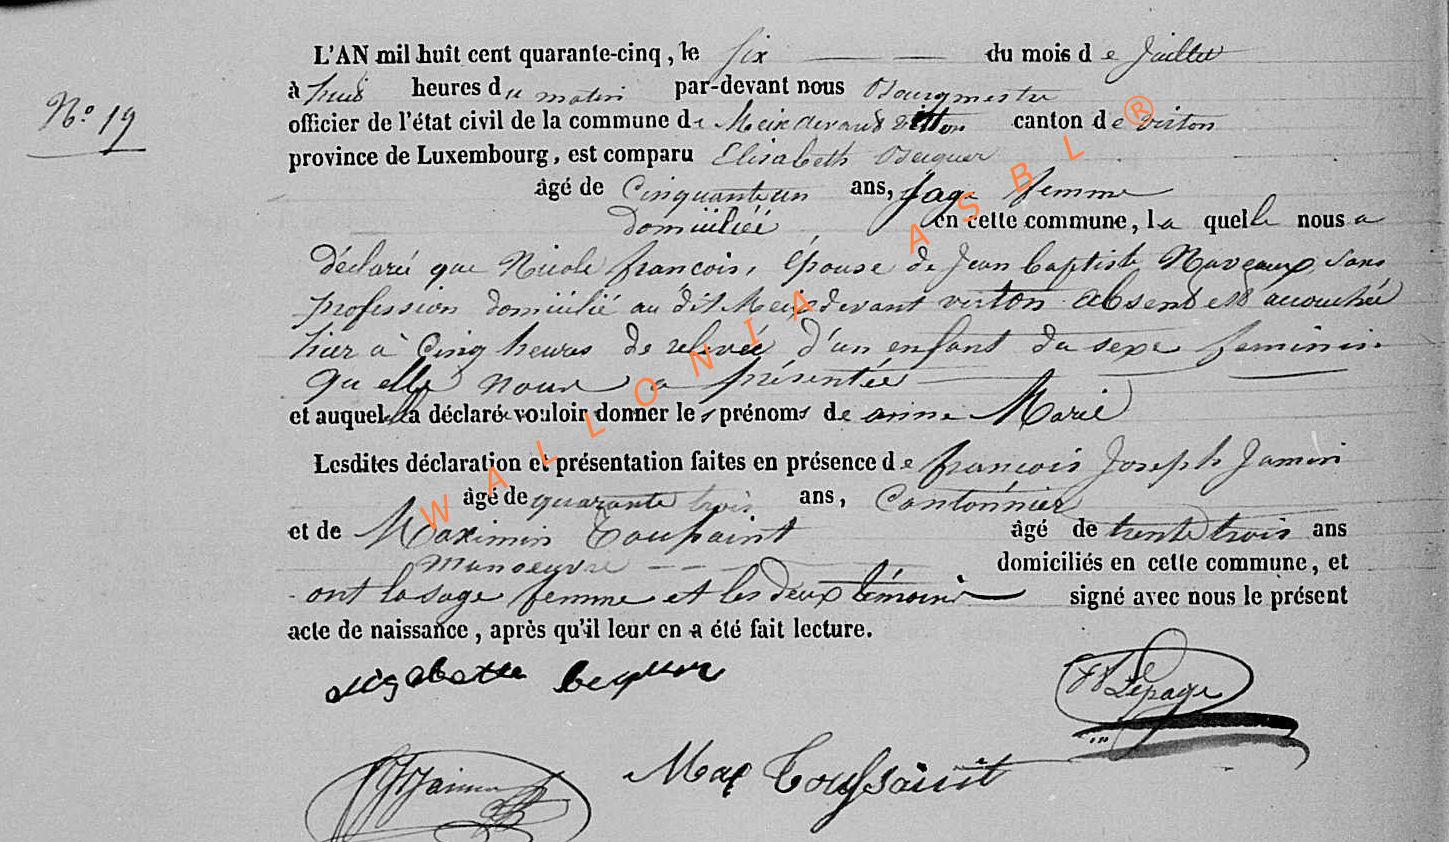 N.o 19
L'AN mil huit cent quarante-cinq, le six du mois de juillet
à huit heures du matin par-devant nous Bourgmestre
officier de l'état civil de la commune de Meix devant virton canton de virton
province de Luxembourg, est comparu Elisabeth Bequer
âgé de Cinquante un ans, sage femme
domiciliée en cette commune, la quelle nous a
déclaré que Nicole françois, épouse de Jean baptiste Naveaux, sans
profession domicilié au dit Meix devant virton absent est accouchée
hier à Cinq heures de relevée d'un enfant du sexe feminin
qu'elle nous a présentée
et auquel ella déclaré vouloir donner les prénoms de anne Marie
Lesdites déclaration et présentation faites en présence de françois Joseph Jamin
âgé de quarante trois ans, Cantonnier
et de Maximin Toussaint âgé de trente trois ans
manoeuvre domiciliés en cette commune, et
ont la sage femme et les deux témoins signé avec nous le présent
acte de naissance, après qu'il leur en a été fait lecture.
elisabette bequer
Lepage
FJJamin
Max Toussaint
WALLONIA ASBL ®